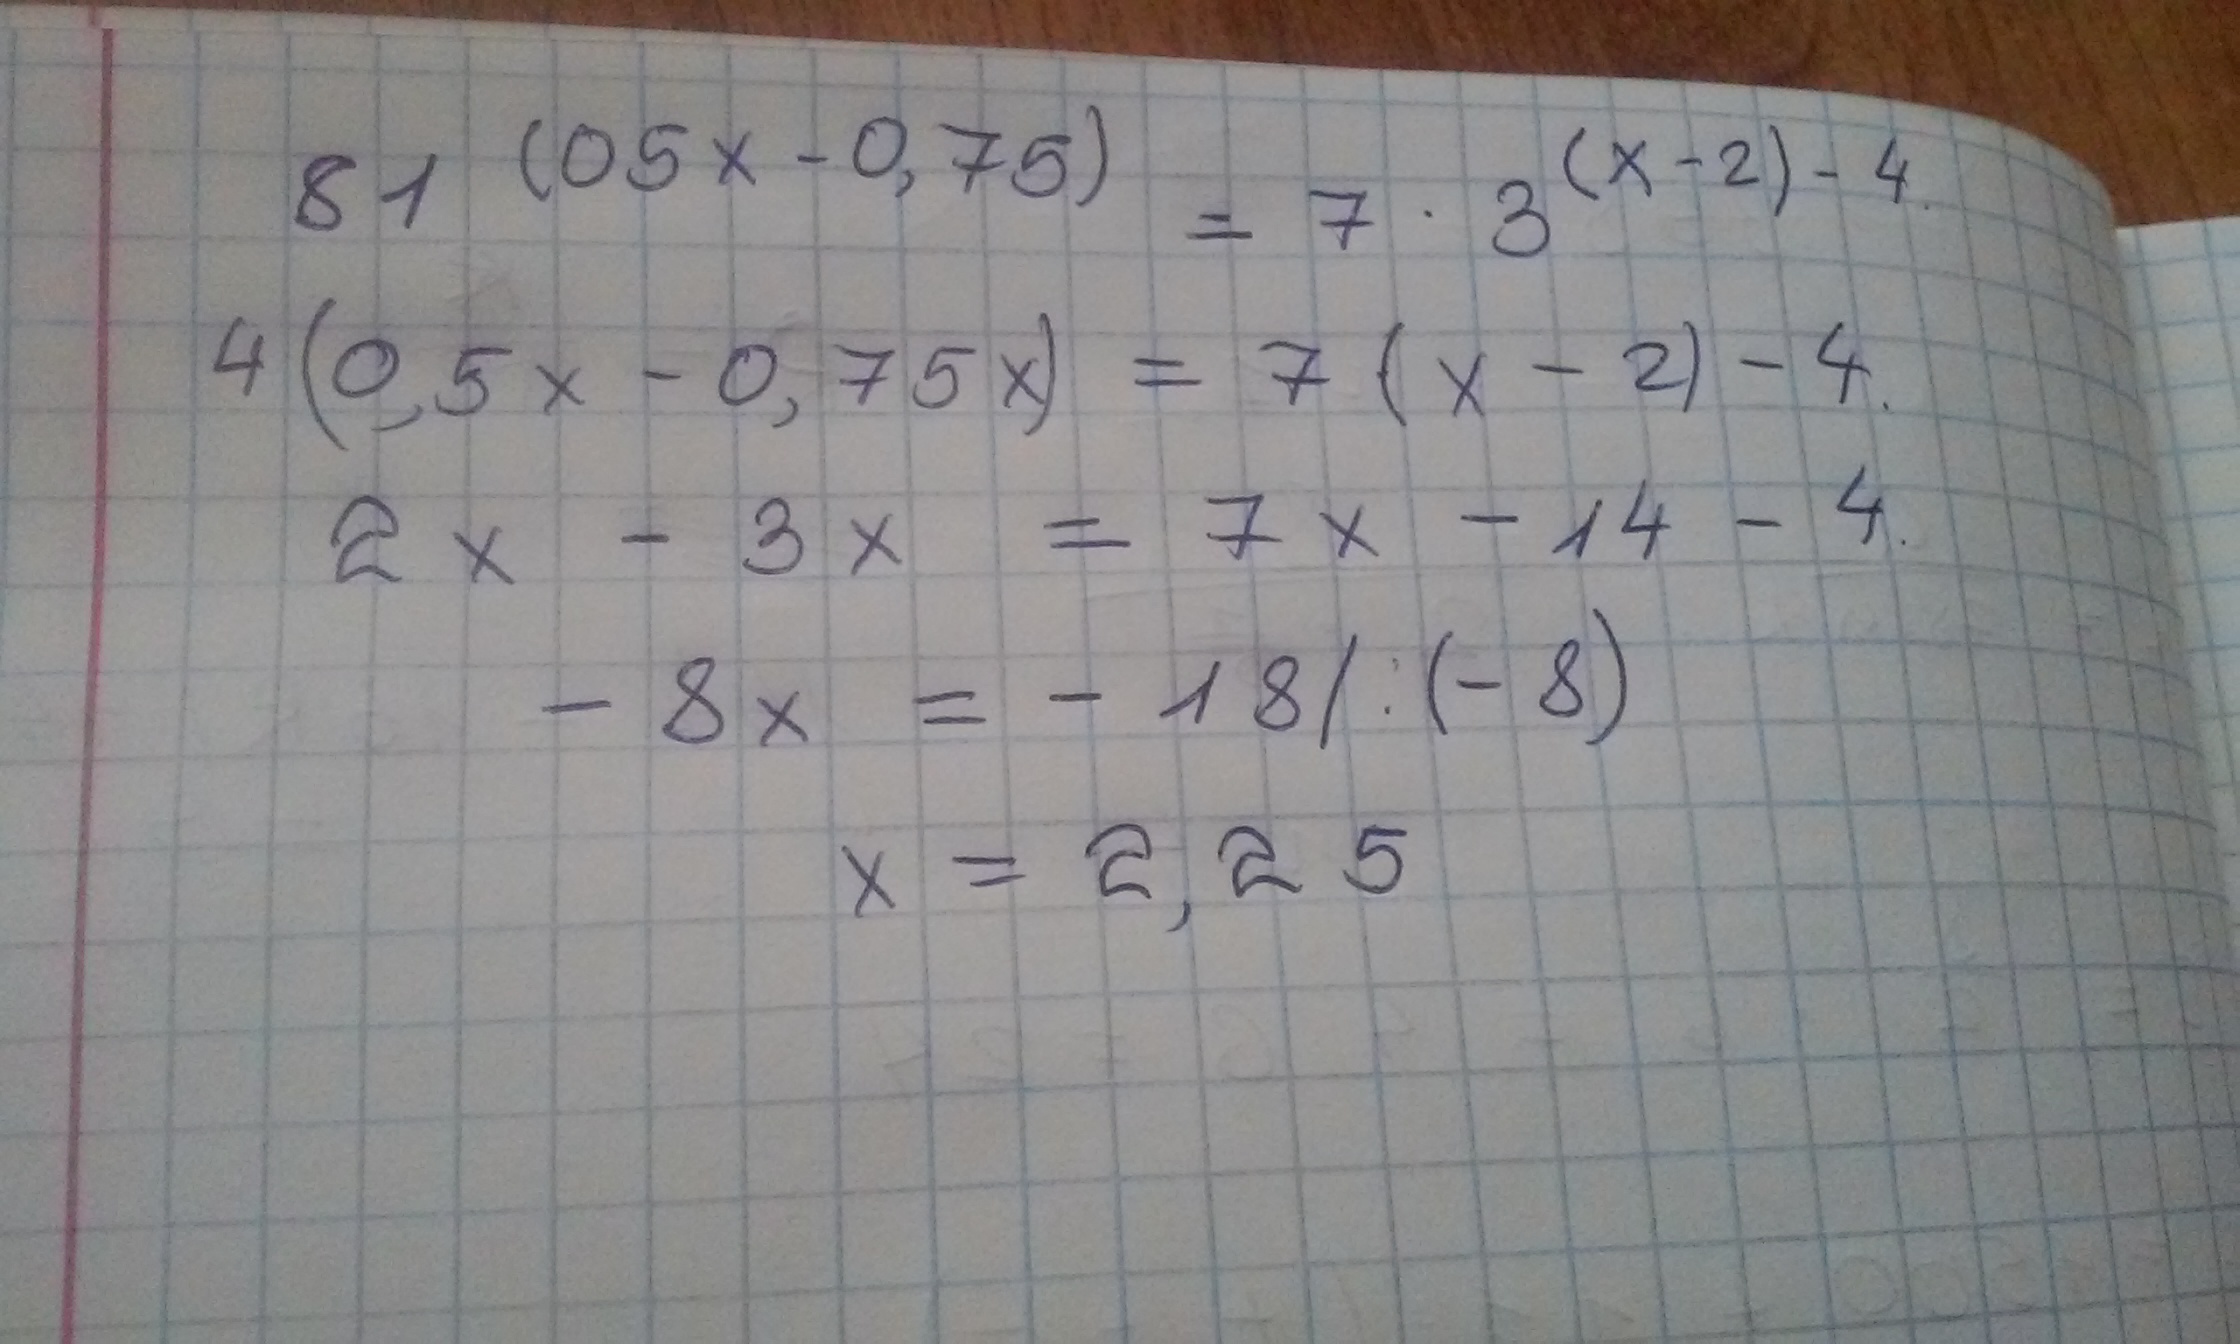 81^(05x-0,75) = 7 · 3^(x-2)-4.
4(0,5x-0,75x) = 7(x-2)-4.
2x - 3x = 7x - 14 - 4.
-8x = -18/:(-8)
x = 2,25